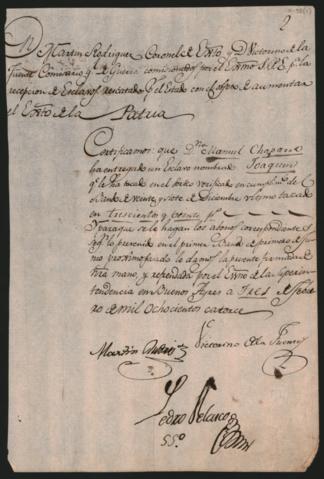 2
Dn. Martin Rodriguez Coronel de Exto. y Dn. Victorino de la
Fuente Comisario de Guerra comisionados por el Exmo S.P.E. pa. la
recepcion de Esclavos rescatados pr. el Estado con el objeto de aumentar
el Exto. de la Patria
Certificamos que Dn. Manuel Chapard
ha entregado un Esclavo nombrado Joaquin
qe. le ha tocado en el verificado en cumplimto. del
Bando de veinte y siete de Diciembre ultimo tasado
en trescientos y veinte ps.
Y para que se le hagan los abonos correspondientes
segn. lo prevenido en el primer Bando de primero de Junio
proximo pasado le damos la presente firmada de
nra mano, y refrendada por el Esno. de la Yperin-
tendencia en Buenos Ayres a tres de Febre-
ro de mil ochocientos catorce
Martin Rodrigz.
Victorino de la Fuente
Pedro Velasco
SSo.